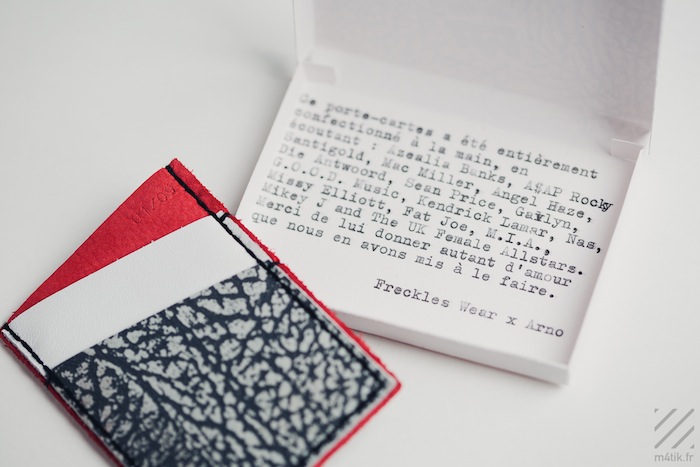 Ce porte-cartes a été entièrement
confectionné à la main, en
écoutant : Azealia Banks, A$AP Rocky
Santigold, Mac Miller, Angel Haze,
Die Antwoord, Sean Price, Gavlyn,
G.O.O.D. Music, Kendrick Lamar, Nas,
Missy Elliott, Fat Joe, M.I.A.,
Mikey J and The UK Female Allstars.
Merci de lui donner autant d'amour
que nous en avons mis à le faire.
Freckles Wear x Arno
m4tik.fr